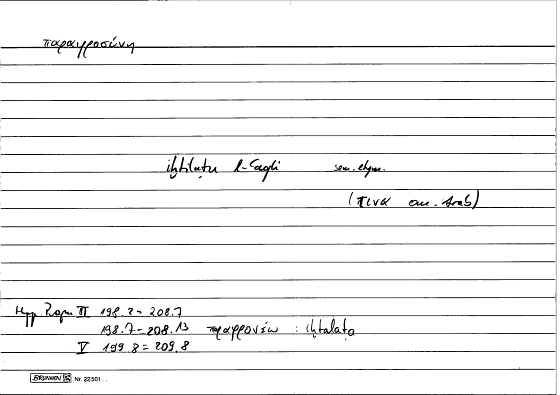 παραφροσύνη
iḫtilāṭu l-ʿaqli sem. etym.
(τινα om. Arab)
Hipp. Progn. III 198.2 = 208.7
198.7 = 208.13 παραφρονέω : iḫtalaṭa
V 199.8 = 209.8
BRUNNEN Nr. 22501